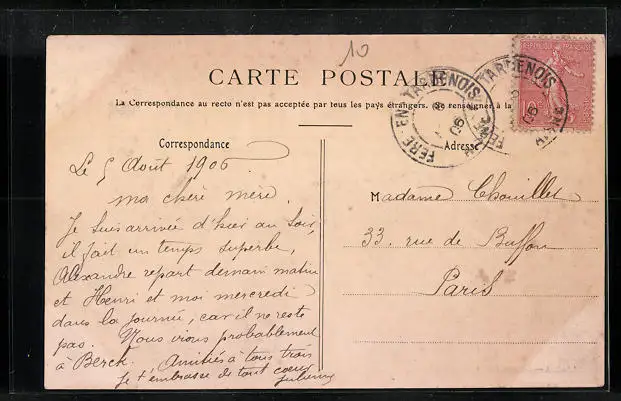 10
CARTE POSTALE
La Correspondance au recto n'est pas acceptée par tous les pays étrangers. (Se renseigner à la
Correspondance
Adresse
REPUBLIQUE FRANÇAISE
10c
FERE-EN-TARDENOIS
AISNE
06
FERE-EN-TARDENOIS
AISNE
06
Le 5 Août 1906
ma chère mère
Je suis arrivée d'hier au soir,
il fait un temps superbe,
Alexandre repart demain matin
et Henri et moi mercredi
dans la journée, car il ne reste
pas. Nous irons probablement
à Berck. Amitiés à tous trois
Je t'embrasse de tout coeur
Julienne
Madame Chouillet
33. rue de Buffon
Paris